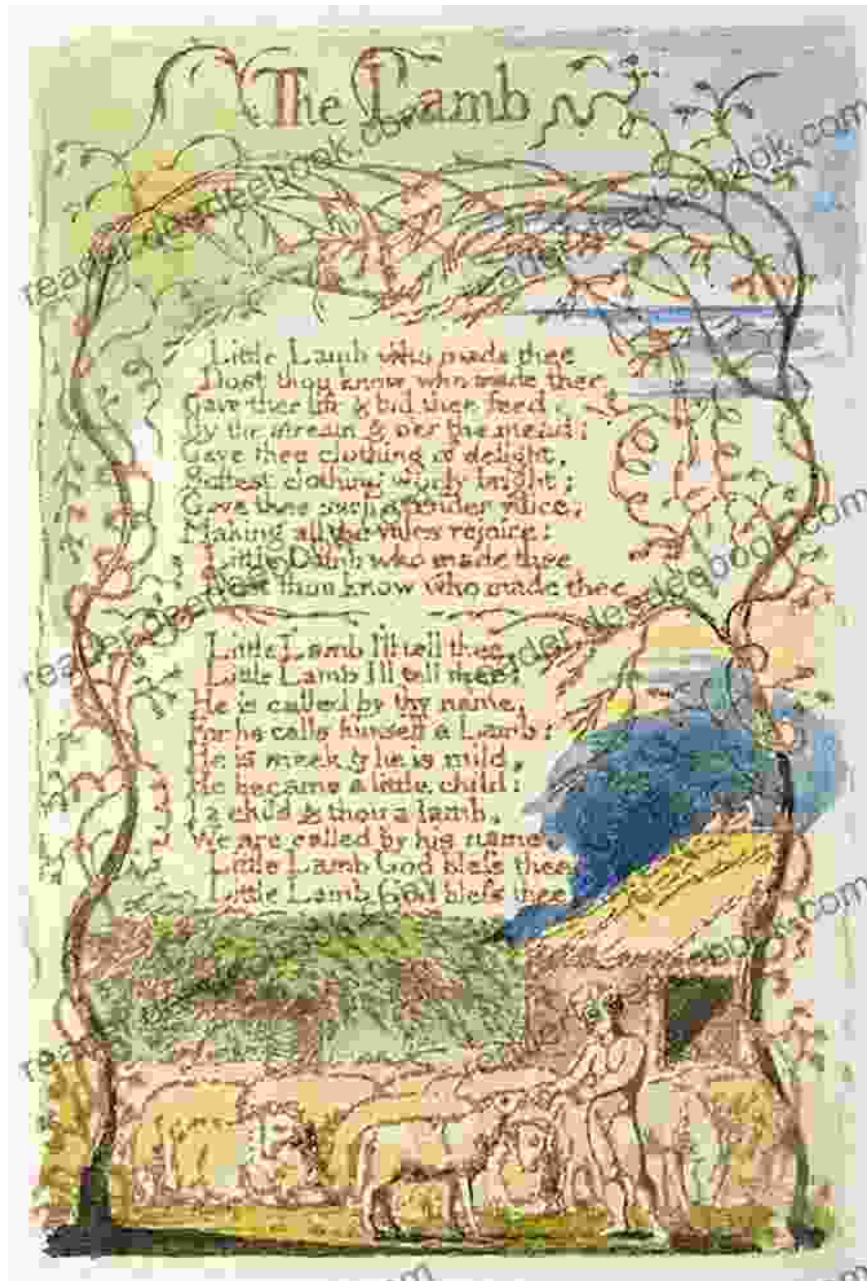 The Lamb
Little Lamb who made thee
Dost thou know who made thee
Gave thee life & bid thee feed.
By the stream & o'er the mead;
Gave thee clothing of delight,
Softest clothing wooly bright;
Gave thee such a tender voice,
Making all the vales rejoice:
Little Lamb who made thee
Dost thou know who made thee
Little Lamb I'll tell thee,
Little Lamb I'll tell thee;
He is called by thy name,
For he calls himself a Lamb:
He is meek & he is mild,
He became a little child:
I a child & thou a lamb,
We are called by his name.
Little Lamb God bless thee,
Little Lamb God bless thee.
reader.deedeebook.com
reader.deedeebook.com
reader.deedeebook.com
reader.deedeebook.com